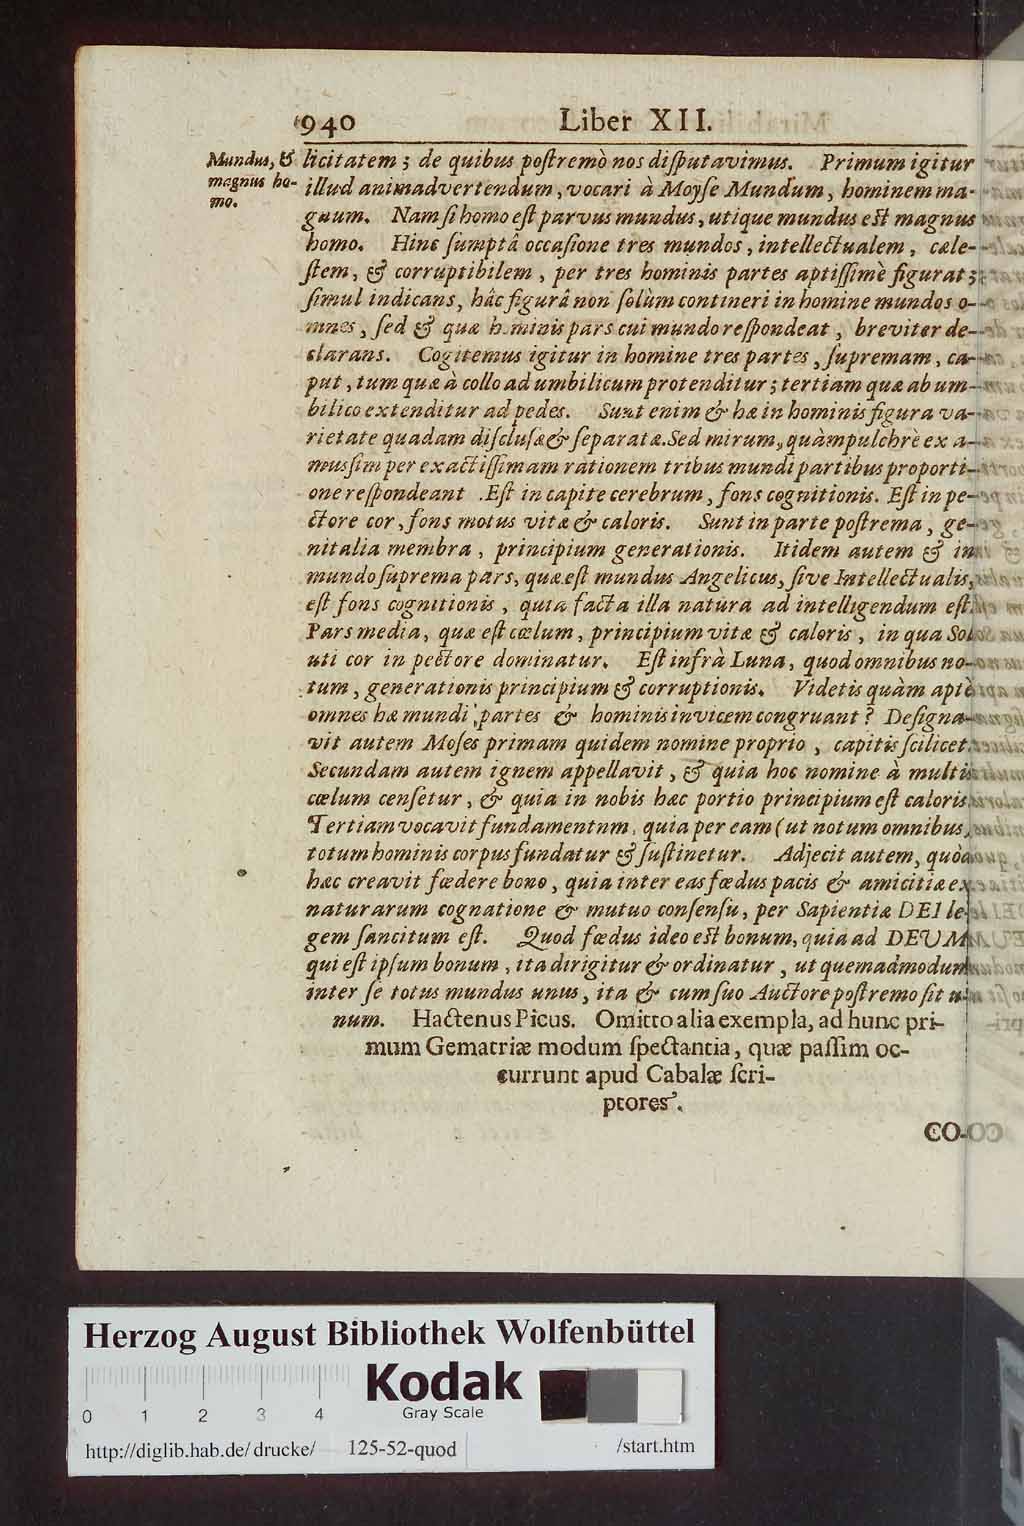 940
Liber XII.
Mundus, &
magnus ho-
mo.
licitatem; de quibus postremò nos disputavimus. Primum igitur
illud animadvertendum, vocari à Moyse Mundum, hominem ma-
gnum. Nam si homo est parvus mundus, utique mundus est magnus
homo. Hinc sumptâ occasione tres mundos, intellectualem, cæle-
stem, & corruptibilem, per tres hominis partes aptissimè figurat;
simul indicans, hâc figurâ non solùm contineri in homine mundos o-
mnes, sed & quæ hominis pars cui mundo respondeat, breviter de-
clarans. Cogitemus igitur in homine tres partes, supremam, ca-
put, tum quæ à collo ad umbilicum protenditur; tertiam quæ ab um-
bilico extenditur ad pedes. Sunt enim & hæ in hominis figura va-
rietate quadam disclusæ & separatæ. Sed mirum, quàm pulchrè ex a-
mussim per exactissimam rationem tribus mundi partibus proporti-
one respondeant. Est in capite cerebrum, fons cognitionis. Est in pe-
ctore cor, fons motus vitæ & caloris. Sunt in parte postrema, ge-
nitalia membra, principium generationis. Itidem autem & in
mundo suprema pars, quæ est mundus Angelicus, sive Intellectualis,
est fons cognitionis, quia facta illa natura ad intelligendum est.
Pars media, quæ est cœlum, principium vitæ & caloris, in qua Sol
uti cor in pectore dominatur. Est infrà Luna, quod omnibus no-
tum, generationis principium & corruptionis. Videtis quàm aptè
omnes hæ mundi partes & hominis invicem congruant? Designa-
vit autem Moses primam quidem nomine proprio, capitis scilicet.
Secundam autem ignem appellavit, & quia hoc nomine à multis
cœlum censetur, & quia in nobis hæc portio principium est caloris.
Tertiam vocavit fundamentnm, quia per eam (ut notum omnibus)
totum hominis corpus fundatur & sustinetur. Adjecit autem, quòd
hæc creavit fœdere bono, quia inter eas fœdus pacis & amicitiæ ex
naturarum cognatione & mutuo consensu, per Sapientiæ DEI le-
gem sancitum est. Quod fœdus ideo est bonum, quia ad DEUM
qui est ipsum bonum, ita dirigitur & ordinatur, ut quemadmodum
inter se totus mundus unus, ita & cum suo Auctore postremo sit u-
num. Hactenus Picus. Omitto alia exempla, ad hunc pri-
mum Gematriæ modum spectantia, quæ passim oc-
currunt apud Cabalæ scri-
ptores.
CO-
Herzog August Bibliothek Wolfenbüttel
Kodak
Gray Scale
0 1 2 3 4
http://diglib.hab.de/drucke/ 125-52-quod /start.htm